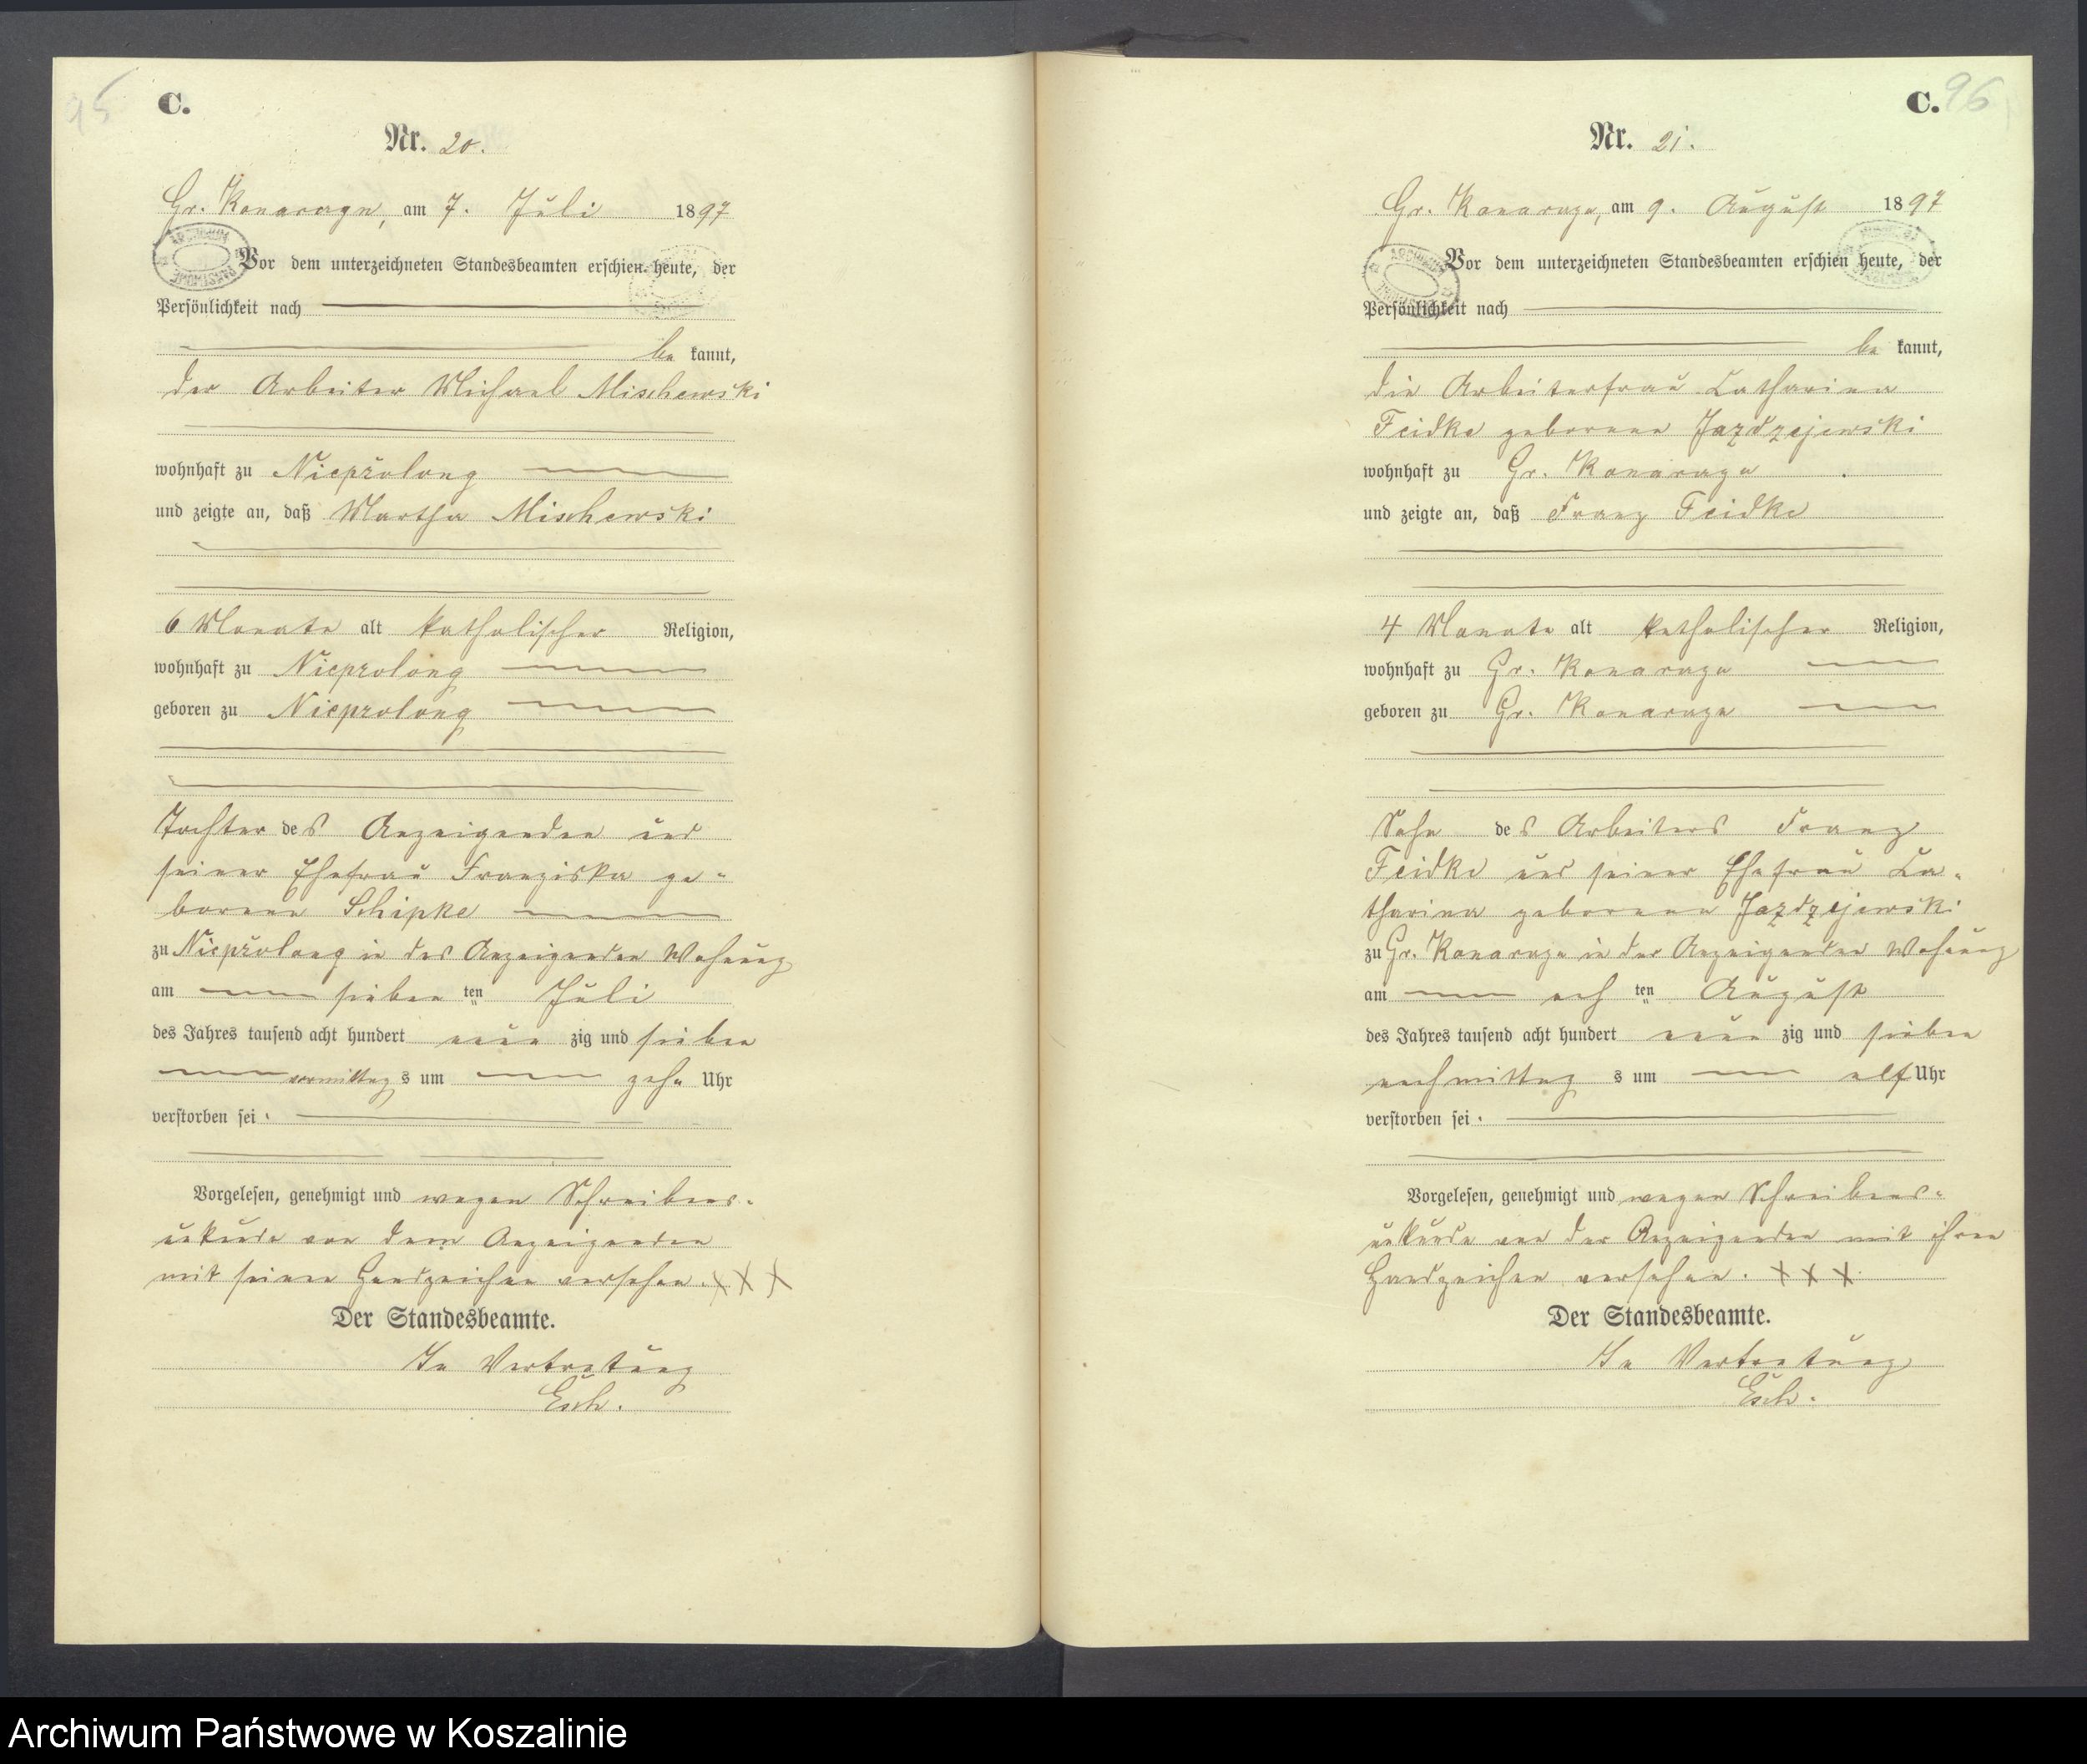 95
C.
Nr. 20.
Gr. Konarczyn, am 7. Juli 1897
Vor dem unterzeichneten Standesbeamten erschien heute, der
Persönlichkeit nach
be kannt,
der Arbeiter Michael Mischewski
wohnhaft zu Nieprolong
und zeigte an, daß Martha Mischewski
6 Monate alt katholischer Religion,
wohnhaft zu Nieprolong
geboren zu Nieprolong
Tochter des Anzeigenden und
seiner Ehefrau Franziska ge-
borene Schipke
zu Nieprolong in des Anzeigenden Wohnung
am sieben ten Juli
des Jahres tausend acht hundert neun zig und sieben
vormittag s um zehn Uhr
verstorben sei.
Vorgelesen, genehmigt und wegen Schreibens-
unkunde von dem Anzeigenden
mit seinen Handzeichen versehen. X X X
Der Standesbeamte.
In Vertretung
Esch.
C. 96
Nr. 21.
Gr. Konarczyn, am 9. August 1897
Vor dem unterzeichneten Standesbeamten erschien heute, der
Persönlichkeit nach
be kannt,
die Arbeiterfrau Catharina
Feidke geborene Jazdzejewski
wohnhaft zu Gr. Konarczyn
und zeigte an, daß Franz Feidke
4 Monate alt katholischer Religion,
wohnhaft zu Gr. Konarczyn
geboren zu Gr. Konarczyn
Sohn des Arbeiters Franz
Feidke und seiner Ehefrau Ca-
tharina geborene Jazdzejewski
zu Gr. Konarczyn in der Anzeigenden Wohnung
am ach ten August
des Jahres tausend acht hundert neun zig und sieben
nachmittag s um elf Uhr
verstorben sei.
Vorgelesen, genehmigt und wegen Schreibens-
unkunde von der Anzeigenden mit ihren
Handzeichen versehen. X X X
Der Standesbeamte.
In Vertretung
Esch.
Archiwum Państwowe w Koszalinie